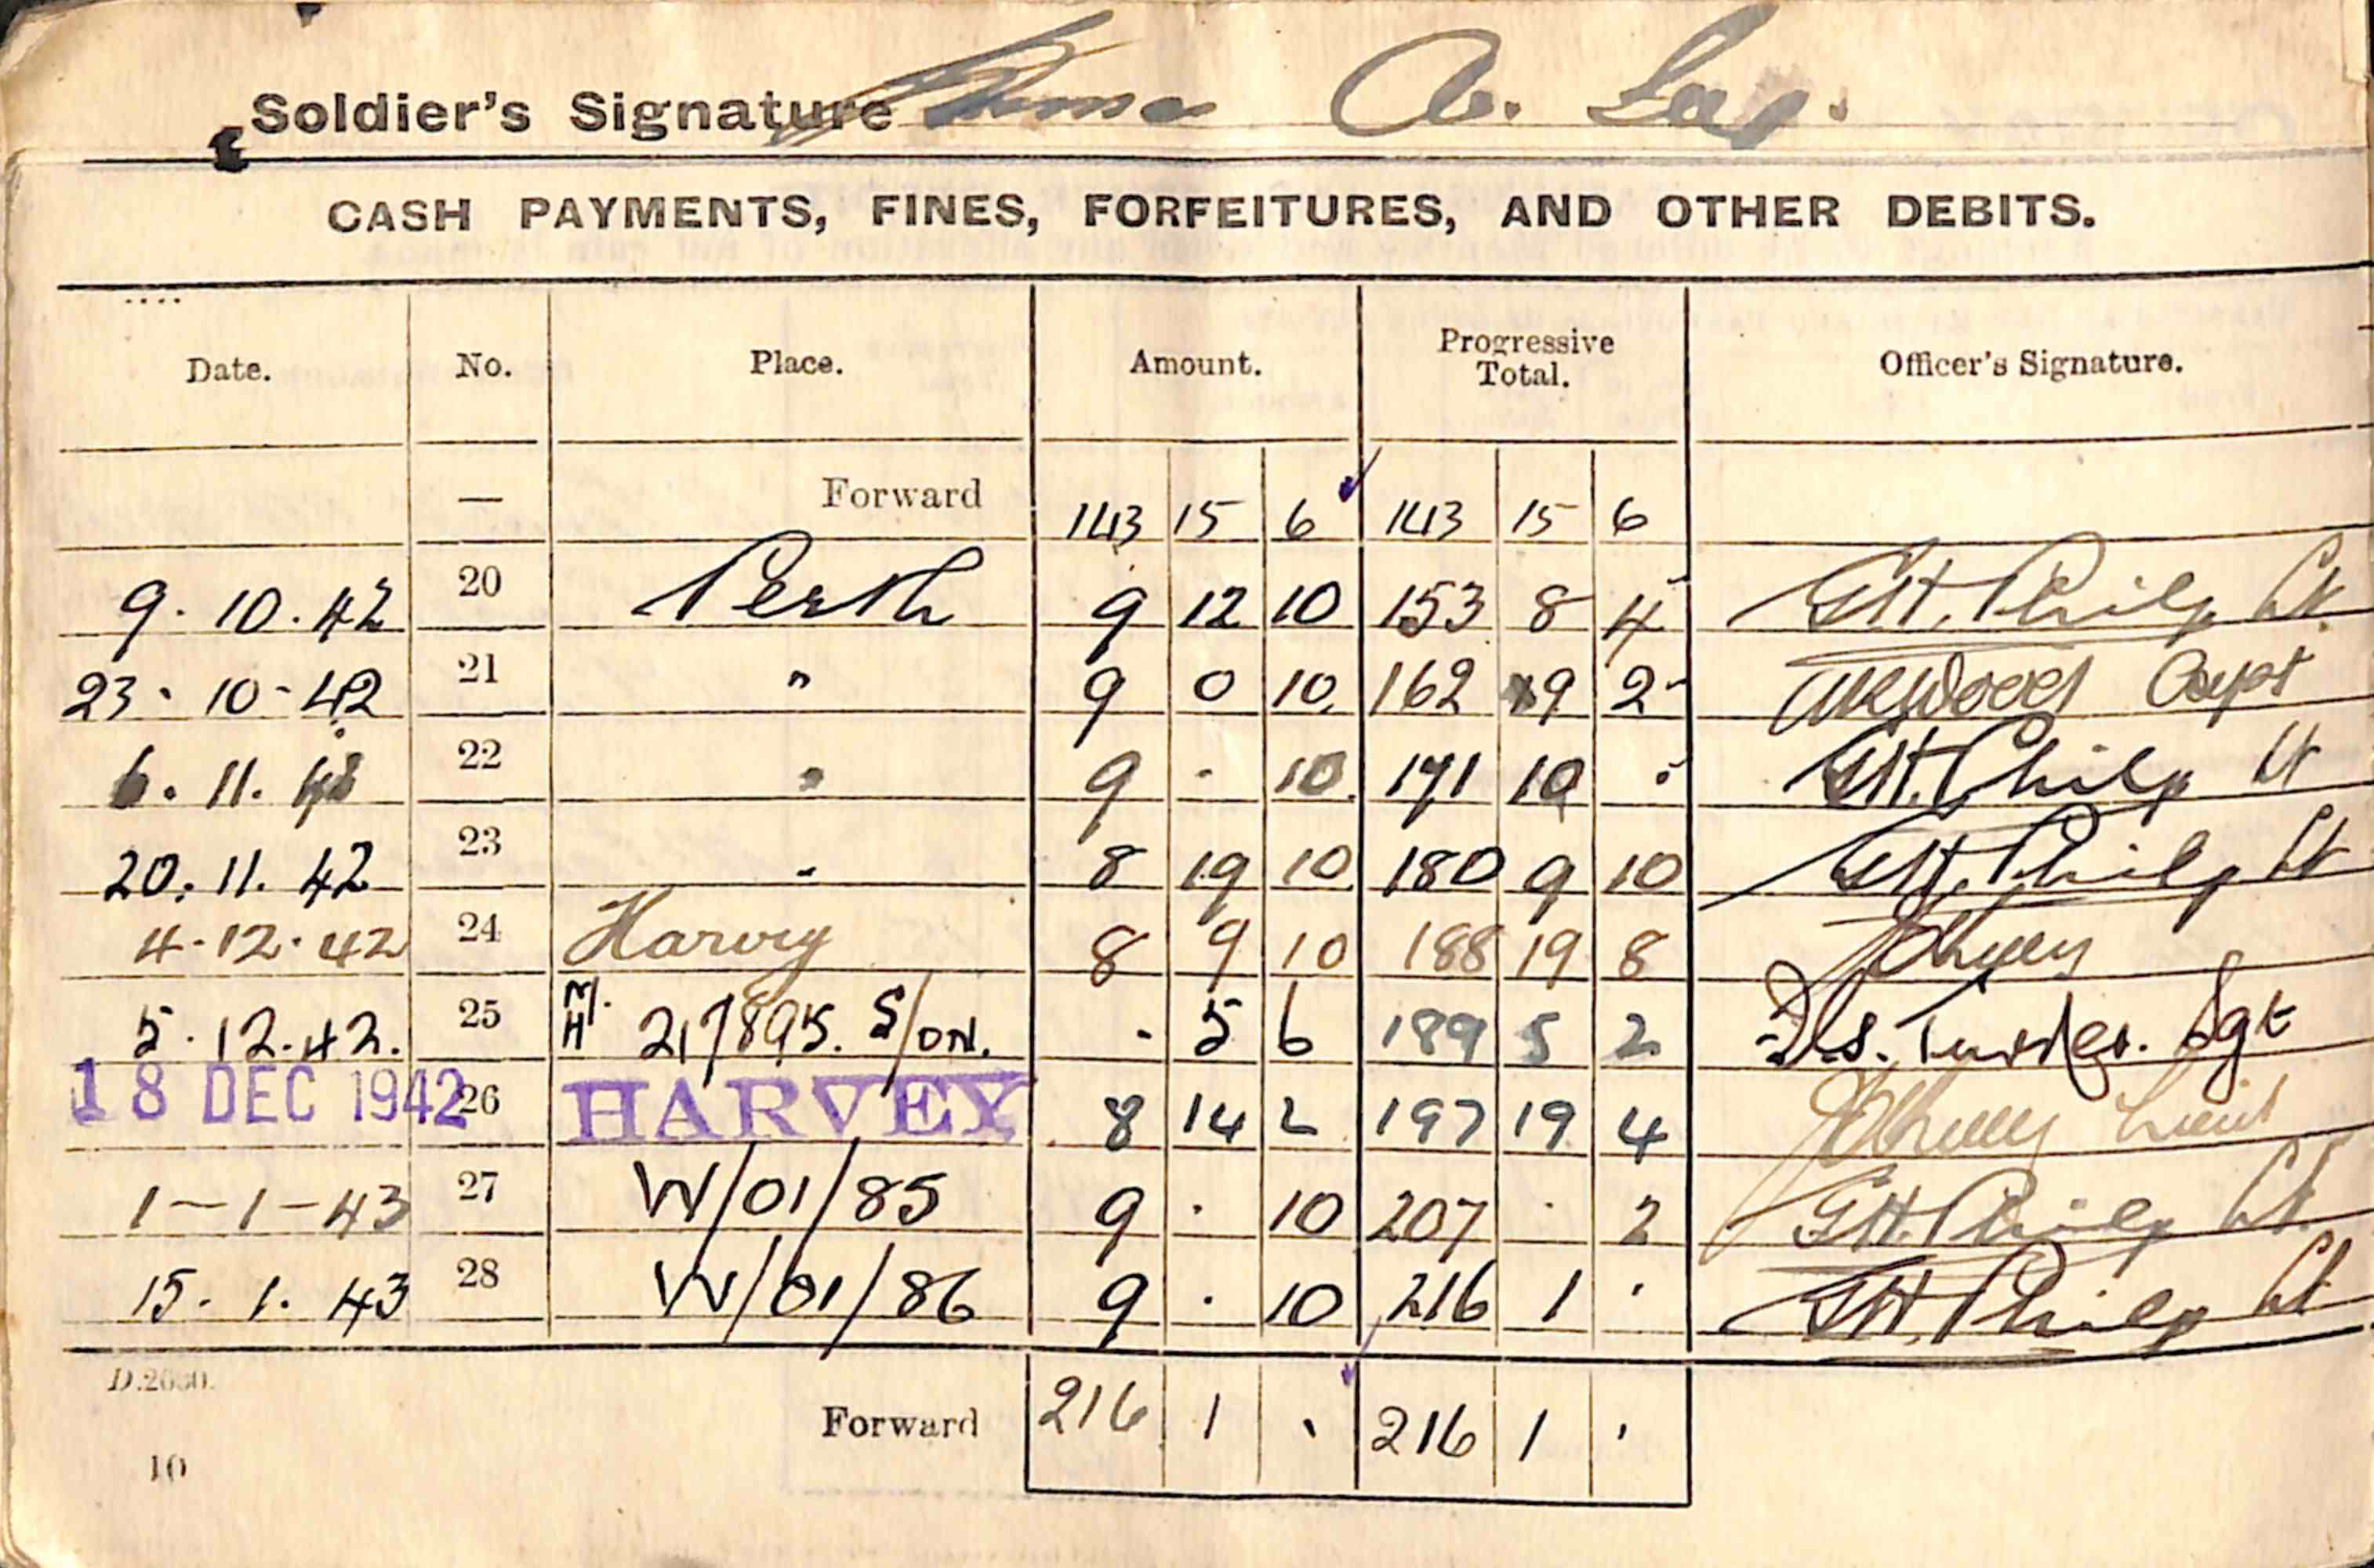 Soldier's Signature A. Lee.
CASH PAYMENTS, FINES, FORFEITURES, AND OTHER DEBITS.
Date. No. Place. Amount. Progressive Total. Officer's Signature.
— Forward 143 15 6 143 15 6
9. 10. 42 20 Perth 9 12 10 153 8 4 G.H. Philp Lt.
23. 10-42 21 " 9 0 10. 162 9 2 Capt
6. 11. 22 " 9 - 10. 171 10 - G.H. Philp Lt
20. 11. 42 23 " 8 19 10. 180 9 10 G.H. Philp Lt
4-12-42 24 Harvey 8 9 10 188 19 8
5. 12. 42. 25 217895. S/ON. - 5 6 189 5 2 Sgt
18 DEC 1942 26 HARVEY 8 14 2 197 19 4 Lieut
1-1-43 27 W/01/85 9 . 10 207 . 2 G.H. Philp Lt.
15. 1. 43 28 W/01/86 9 . 10 216 1 . G.H. Philp Lt
D.2680.
Forward 216 1 . 216 1 .
10